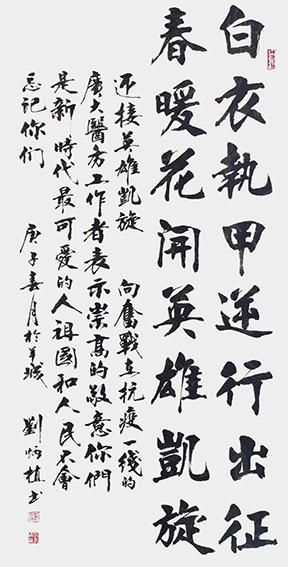 白衣執甲逆行出征
春暖花開英雄凱旋
迎接英雄凱旋 向奮戰在抗疫一线的
廣大醫務工作者表示崇高的敬意你們
是新時代最可愛的人祖國和人民不會
忘记你们 庚子春月於羊城 劉炳植书